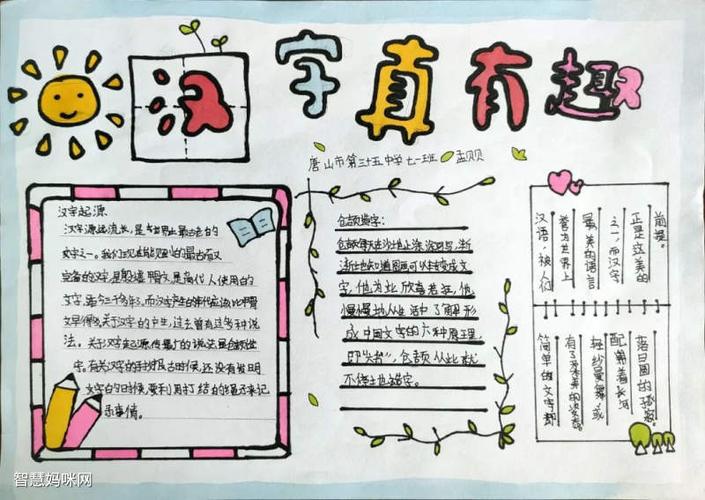 汉字真有趣
唐山市第三十五中学七一班 孟贝贝
汉字起源
汉字源远流长,是世界上最古老的
文字之一。我们现在能见到的最古而又
完备的汉字,是殷墟甲骨文,是商代人使用的
文字,距今三千多年,而汉字产生的年代应该比甲骨
文早得多,关于汉字的产生,过去曾有过多种说
法。关于汉字起源,传最广的说法是仓颉造
字。有关汉字的 古时候,还没有发明
文字的时候,要利用打结的绳子来记
录事情。
仓颉造字:
仓颉每天在沙地上涂涂写写,渐
渐地知道图画可以转变成文
字,他为此欣喜若狂,他
慢慢地从生活中了解形
成中国文字的六种原理,
即"六书",仓颉从此就
不停地造字。
前提。
正是立美的
之一,而汉字
最美的语言
誉为世界上
汉语,被人们
落日圆的
配菊着长河
轻纱曼舞,或
有了
简单的文字都
智慧妈咪网